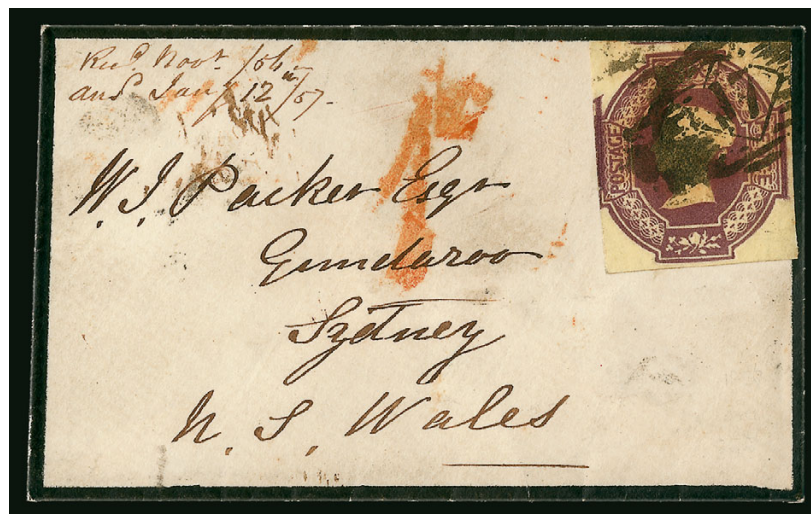 Recd. Novr. /56
ansd. Jany 12th/57.
W. J. Packer Esqr
Gundaroo
Sydney
N. S. Wales
POSTAGE
17